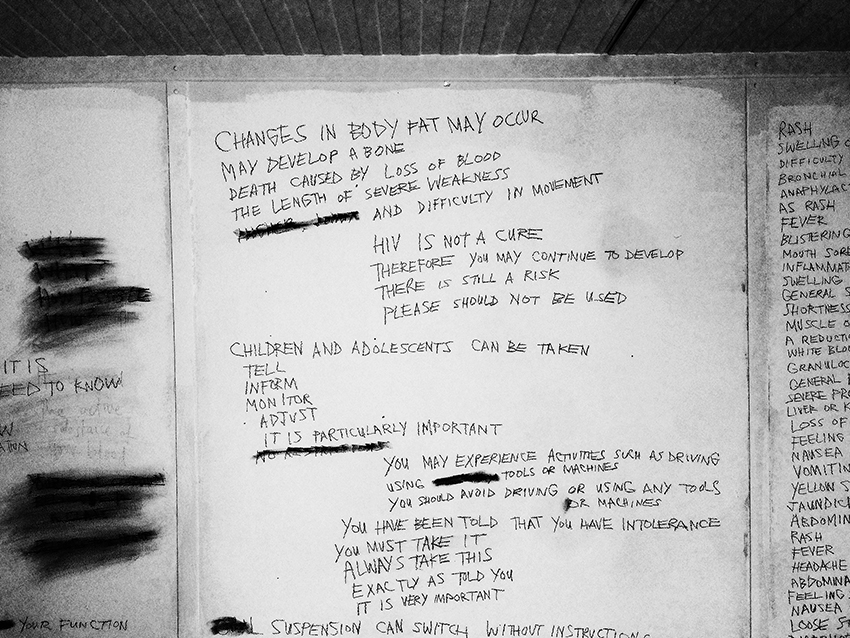 IT IS
EED TO KNOW
YOUR FUNCTION
CHANGES IN BODY FAT MAY OCCUR
MAY DEVELOP A BONE
DEATH CAUSED BY LOSS OF BLOOD
THE LENGTH OF SEVERE WEAKNESS
AND DIFFICULTY IN MOVEMENT
HIV IS NOT A CURE
THEREFORE YOU MAY CONTINUE TO DEVELOP
THERE IS STILL A RISK
PLEASE SHOULD NOT BE USED
CHILDREN AND ADOLESCENTS CAN BE TAKEN
TELL
INFORM
MONITOR
ADJUST
IT IS PARTICULARLY IMPORTANT
YOU MAY EXPERIENCE ACTIVITIES SUCH AS DRIVING
USING TOOLS OR MACHINES
YOU SHOULD AVOID DRIVING OR USING ANY TOOLS
OR MACHINES
YOU HAVE BEEN TOLD THAT YOU HAVE INTOLERANCE
YOU MUST TAKE IT
ALWAYS TAKE THIS
EXACTLY AS TOLD YOU
IT IS VERY IMPORTANT
L SUSPENSION CAN SWITCH WITHOUT INSTRUCTIONS
RASH
SWELLING
DIFFICULTY
BRONCHIAL
ANAPHYLACT
AS RASH
FEVER
BLISTERING
MOUTH SORE
INFLAMMAT
SWELLING
GENERAL
SHORTNESS
MUSCLE
A REDUCTI
WHITE BLO
GRANULOC
GENERAL
SEVERE PR
LIVER OR K
LOSS OF
FEELING
NAUSEA
VOMITIN
YELLOW S
JAUNDIC
ABDOMIN
RASH
FEVER
HEADACHE
ABDOMINA
FEELING
NAUSEA
LOOSE ST